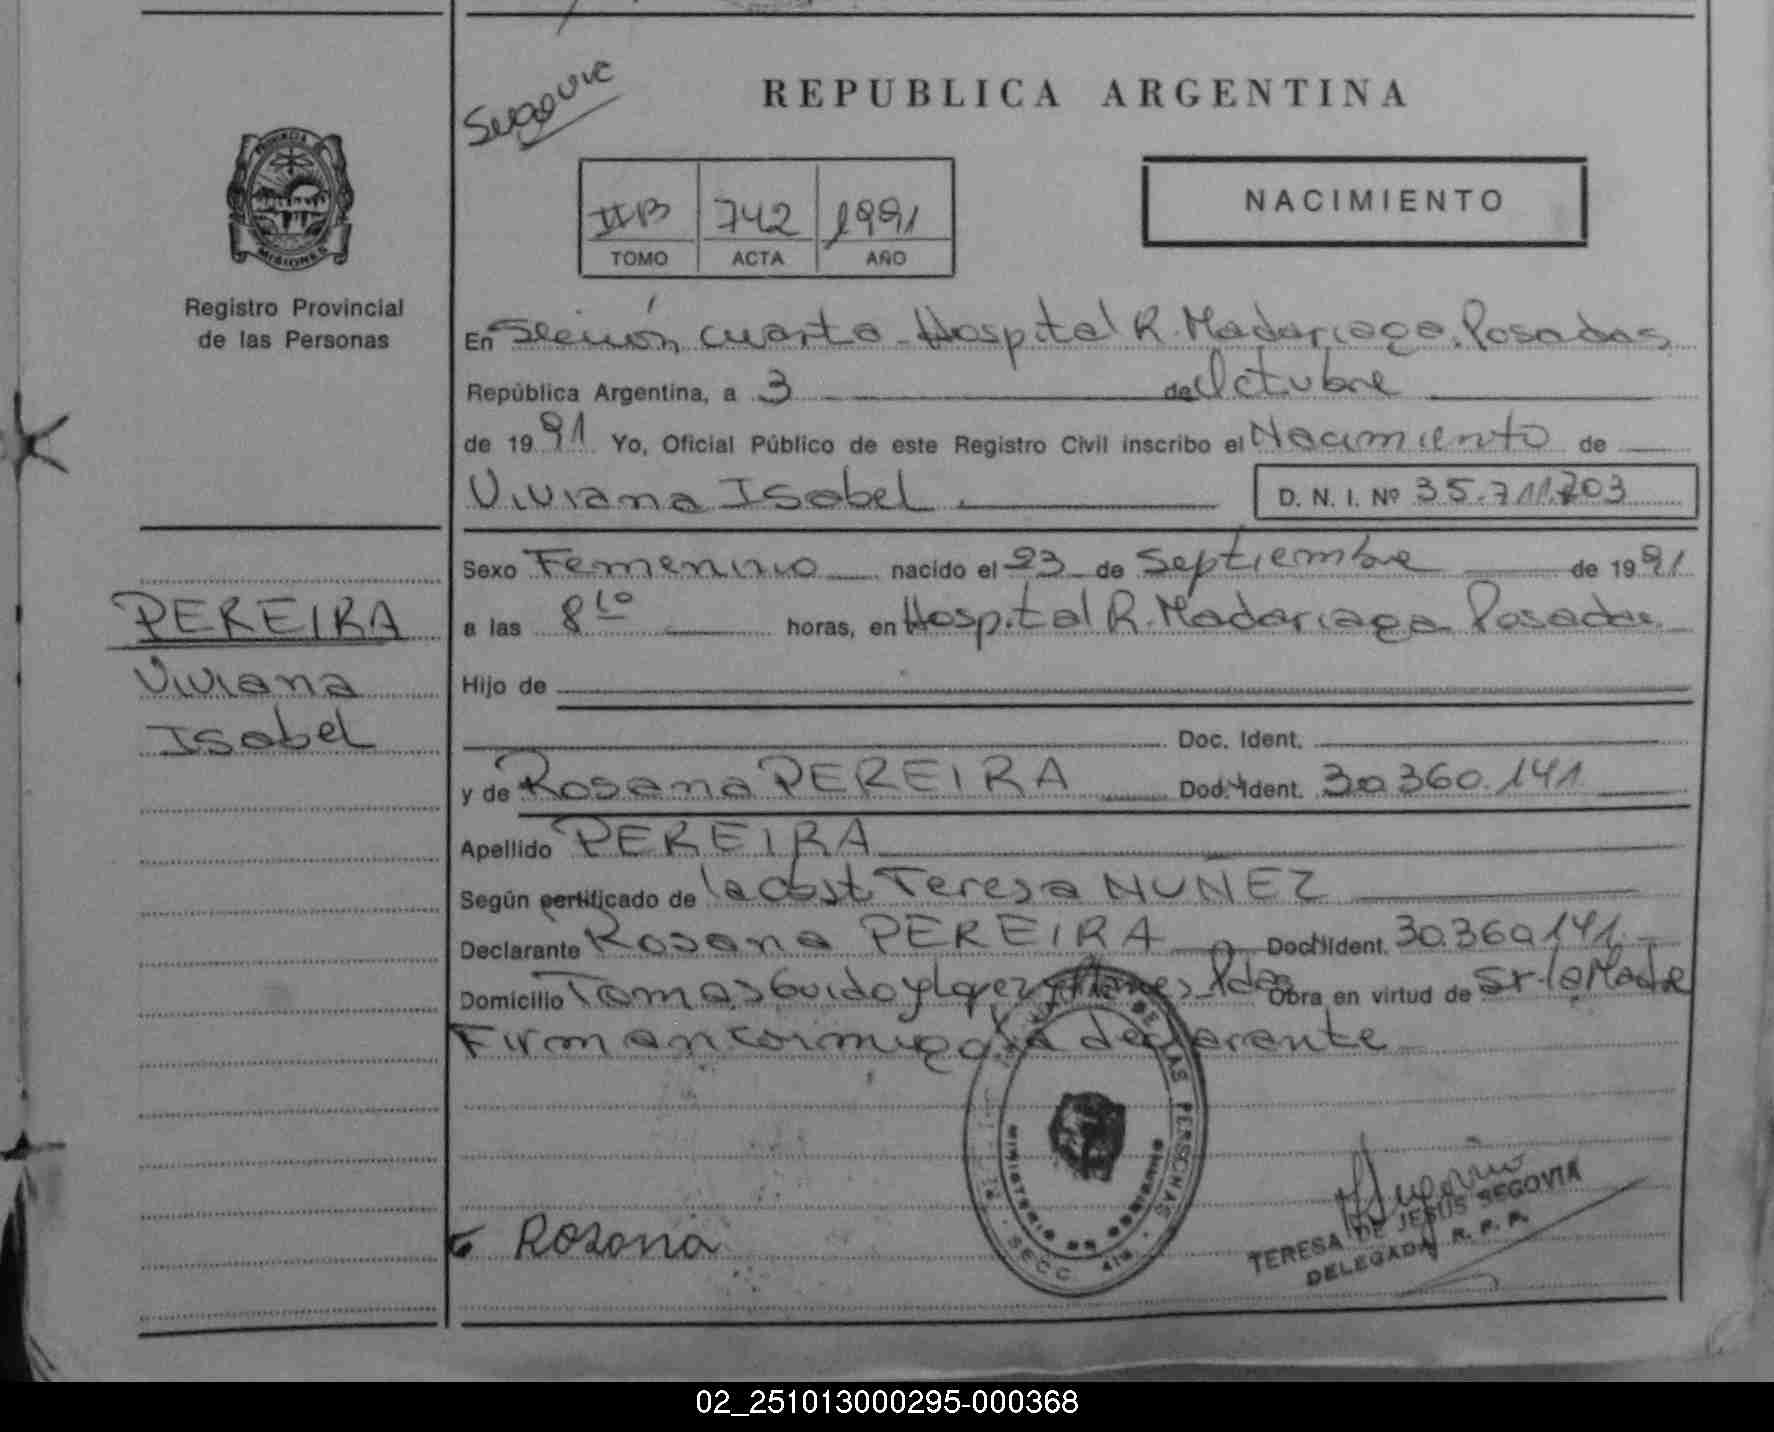 Segovia
REPUBLICA ARGENTINA
PROVINCIA
MISIONES
Registro Provincial
de las Personas
IIB 742 1991
TOMO ACTA AÑO
NACIMIENTO
En Sección cuarta - Hospital R. Madariaga. Posadas
República Argentina, a 3 de Octubre
de 19 91 Yo, Oficial Público de este Registro Civil inscribo el Nacimiento de
Viviana Isabel D. N. I. Nº 35.711.703
PEREIRA
Viviana
Isabel
Sexo Femenino nacido el 23 de Septiembre de 19 91
a las 8 10 horas, en Hospital R. Madariaga Posadas
Hijo de
Doc. Ident.
y de Rosana PEREIRA Doc. Ident. 30.360.141
Apellido PEREIRA
Según certificado de la Obst. Teresa NUNEZ
Declarante Rosana PEREIRA Doc. Ident. 30.360.141
Domicilio Tomas Guido y Lopez y Planes, Pdas Obra en virtud de Sr. la Madre
Firman conmigo la declarante
DE LAS PERSONAS
MINISTERIO DE GOBIERNO
SECC. 4ta.
Rosana
TERESA DE JESUS SEGOVIA
DELEGADA R. P. P.
02_251013000295-000368